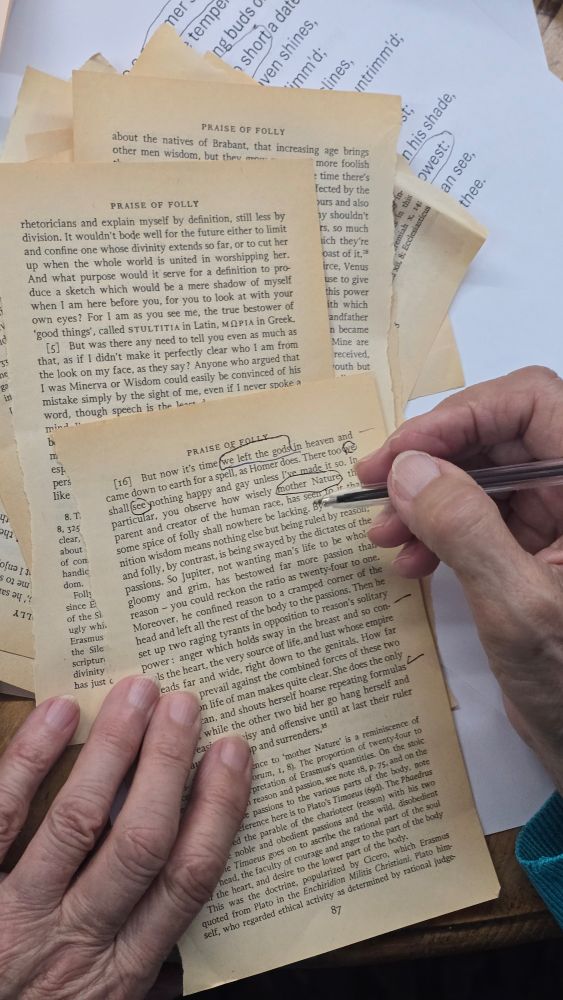 mer
tempe
ng buds o
short a date
ven shines,
imm'd;
lines,
untrimm'd;
st;
n his shade,
owest:
an see,
thee.
PRAISE OF FOLLY
about the natives of Brabant, that increasing age brings
other men wisdom, but they grow more foolish
time there's
fected by the
urs and also
y shouldn't
rs, so much
ich they're
oast of it.
irce, Venus
use to give
this power
ith which
andfather
n became
Mine are
received,
youth but
PRAISE OF FOLLY
rhetoricians and explain myself by definition, still less by
division. It wouldn't bode well for the future either to limit
and confine one whose divinity extends so far, or to cut her
up when the whole world is united in worshipping her.
And what purpose would it serve for a definition to pro-
duce a sketch which would be a mere shadow of myself
when I am here before you, for you to look at with your
own eyes? For I am as you see me, the true bestower of
'good things', called STULTITIA in Latin, ΜΩΡΙΑ in Greek.
[5] But was there any need to tell you even as much as
that, as if I didn't make it perfectly clear who I am from
the look on my face, as they say? Anyone who argued that
I was Minerva or Wisdom could easily be convinced of his
mistake simply by the sight of me, even if I never spoke a
word, though speech is the least
esp
pers
like
8. T.
8. 325
clear,
about
of con
handic
dom.
Folly
since E
of the Si
ugly whi
Erasmus
the Sile
scriptur
divinity
has just
PRAISE OF FOLLY
[16] But now it's time we left the gods in heaven and
came down to earth for a spell, as Homer does. There too we
shall see nothing happy and gay unless I've made it so. In
particular, you observe how wisely mother Nature, the
parent and creator of the human race, has seen to it that
some spice of folly shall nowhere be lacking. By
nition wisdom means nothing else but being ruled by reason;
and folly, by contrast, is being swayed by the dictates of the
passions. So Jupiter, not wanting man's life to be wholly
gloomy and grim, has bestowed far more passion than
reason – you could reckon the ratio as twenty-four to one.
Moreover, he confined reason to a cramped corner of the
head and left all the rest of the body to the passions. Then he
set up two raging tyrants in opposition to reason's solitary
power: anger which holds sway in the breast and so con-
ls the heart, the very source of life, and lust whose empire
eads far and wide, right down to the genitals. How far
prevail against the combined forces of these two
n life of man makes quite clear. She does the only
an, and shouts herself hoarse repeating formulas
while the other two bid her go hang herself and
easi isy and offensive until at last their ruler
p and surrenders.
ence to 'mother Nature' is a reminiscence of
orum, 1, 8). The proportion of twenty-four to
rpretation of Erasmus's quantities. On the stoic
reason and passion, see note 18, p. 75, and on the
passions to the various parts of the body, note
ference here is to Plato's Timoeus (69d). The Phaedrus
d the parable of the charioteer (reason) with his two
noble and obedient passions and the wild, disobedient
e Timoeus goes on to ascribe the rational part of the soul
head, the faculty of courage and anger to the part of the body
f the heart, and desire to the lower part of the body.
This was the doctrine, popularized by Cicero, which Erasmus
quoted from Plato in the Enchiridion Militis Christiani. Plato him-
self, who regarded ethical activity as determined by rational judge-
87